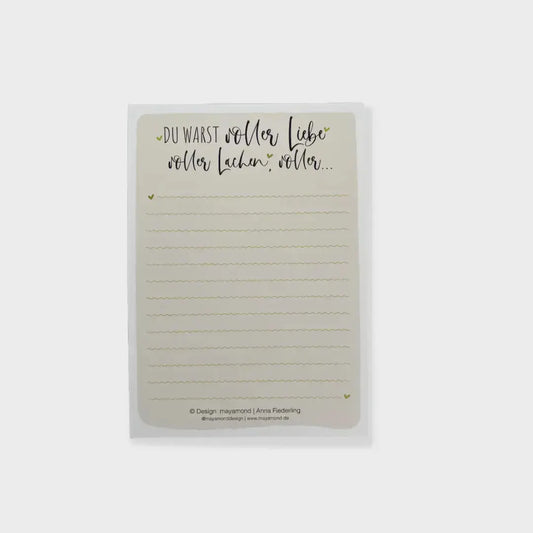 DU WARST voller Liebe
voller Lachen, voller...
© Design: mayamond | Anna Fiederling
@mayamonddesign | www.mayamond.de